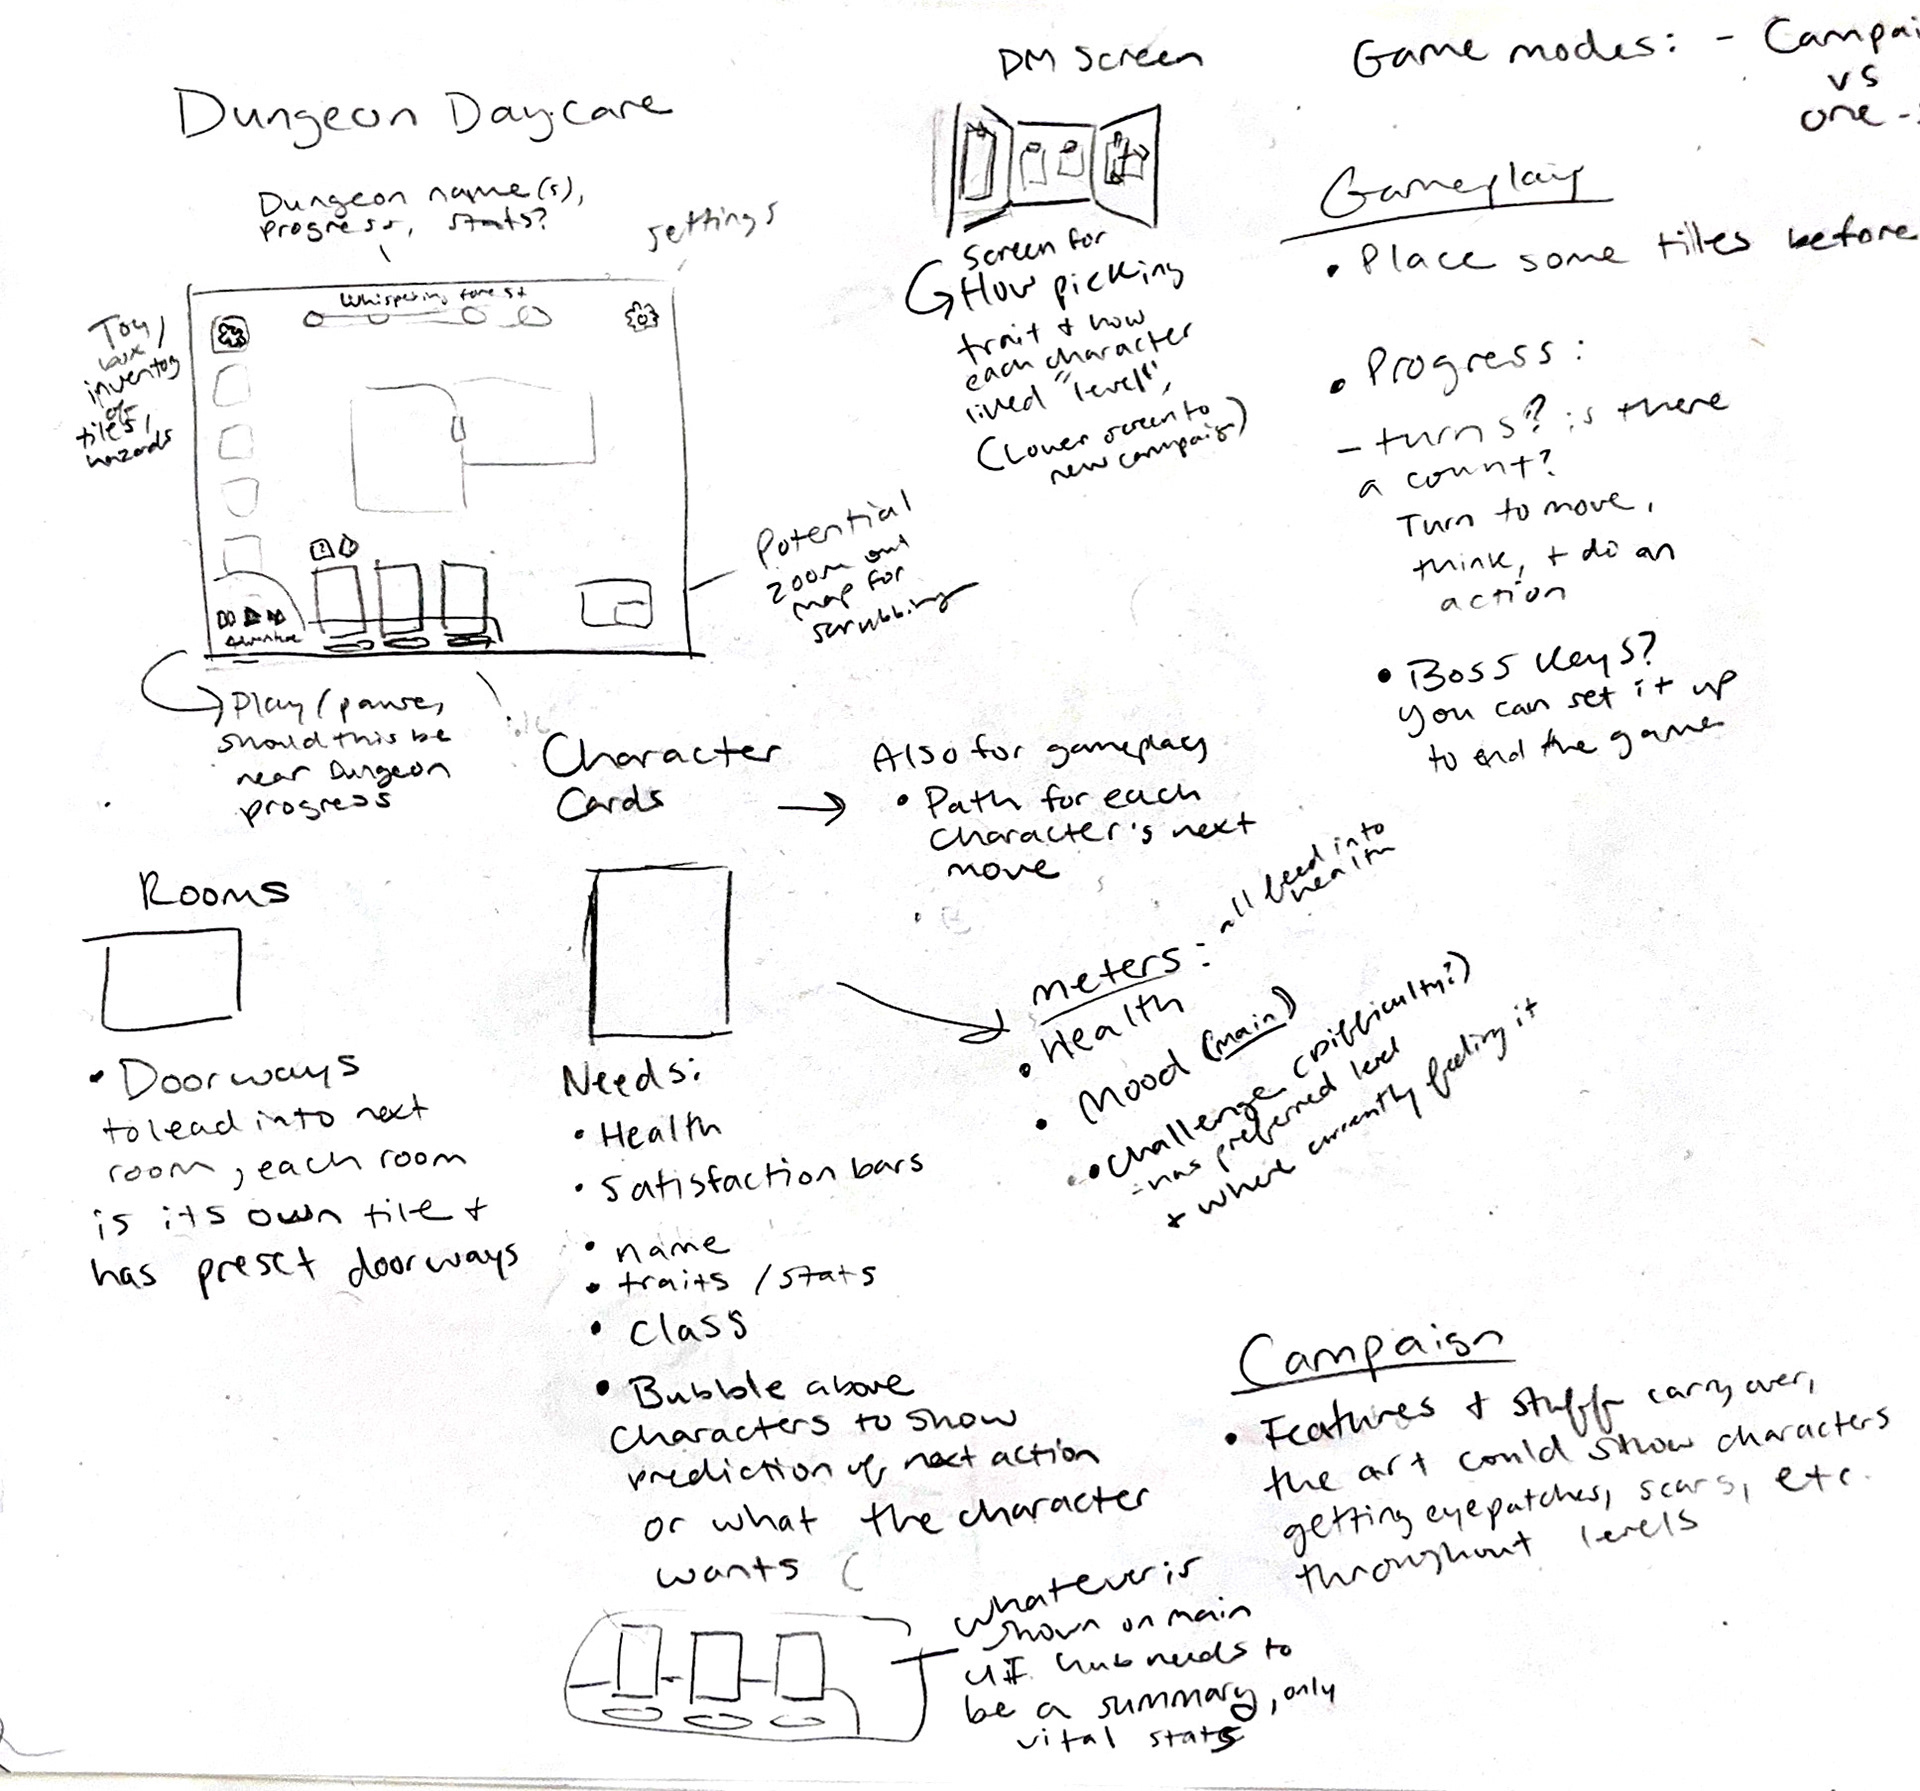 Dungeon Daycare
Dungeon name(s),
progress, stats?
settings
Whispering forest
Toy
box/
inventory
of
tiles,
hazards
Adventure
Play/pause,
should this be
near Dungeon
progress
Potential
zoom out
map for
scrubbing
DM Screen
Screen for
picking
trait + how
each character
lived "level",
(Lower screen to
new campaign)
Game modes: - Campai
vs
one -
Gameplay
• Place some tiles before
• Progress:
- turns? is there
a count?
Turn to move,
think, + do an
action
• Boss Keys?
you can set it up
to end the game
Character
Cards
Also for gameplay
• Path for each
character's next
move
Rooms
• Doorways
to lead into next
room, each room
is its own tile +
has preset doorways
Needs:
• Health
• Satisfaction bars
• name
• traits / stats
• Class
• Bubble above
characters to show
prediction of next action
or what the character
wants
meters: all feed into
health
• Health
• Mood (main)
• Challenge (Difficulty?)
- has preferred level
+ where currently feeling it
Campaign
• Features + stuff carry over,
the art could show characters
getting eyepatches, scars, etc.
throughout levels
whatever is
shown on main
UI hub needs to
be a summary, only
vital stats